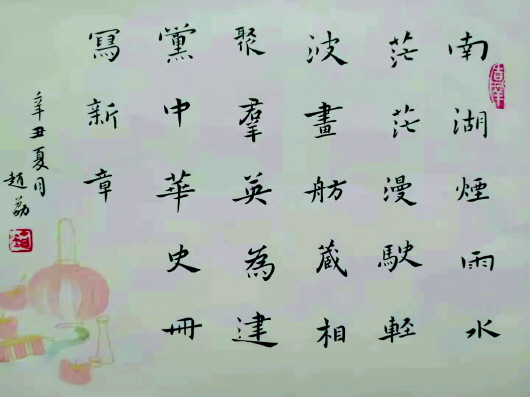 南湖煙雨水
茫茫漫駛輕
波畫舫蔵相
聚羣英為建
黨中華史冊
寫新章
辛丑夏月
趙荔